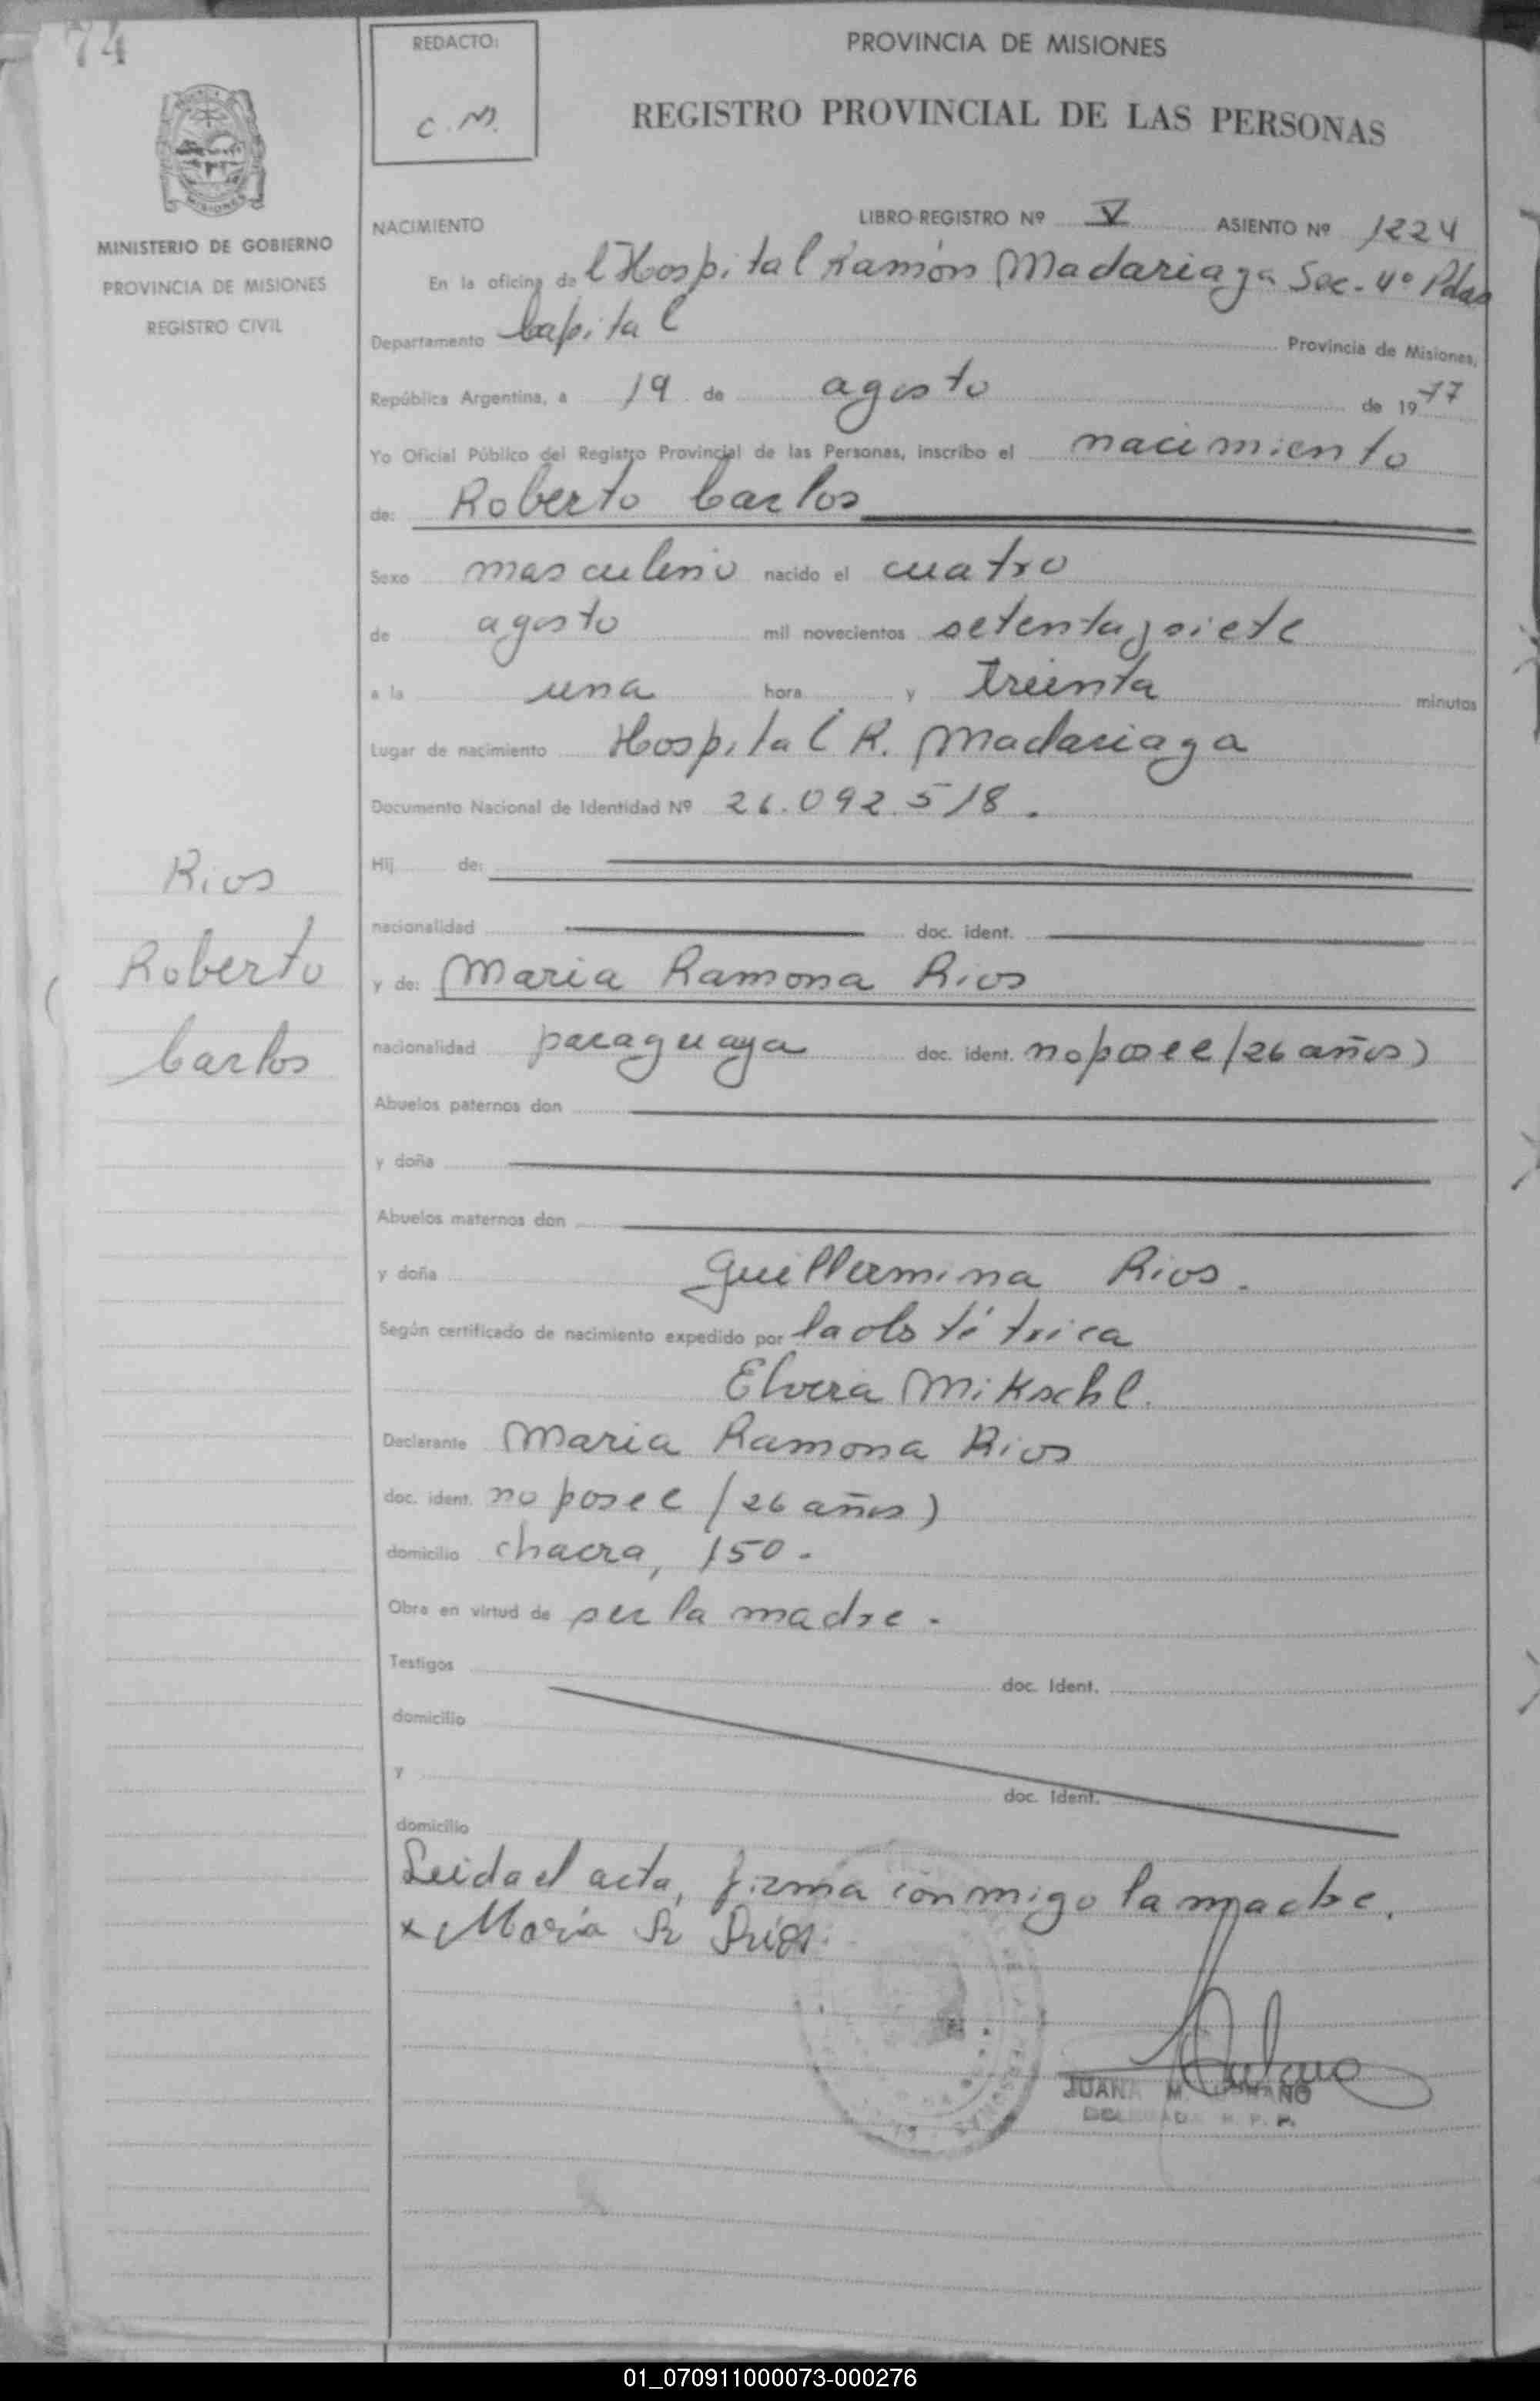 74
REDACTO:
C.M.
PROVINCIA DE MISIONES
REGISTRO PROVINCIAL DE LAS PERSONAS
MISIONES
MINISTERIO DE GOBIERNO
PROVINCIA DE MISIONES
REGISTRO CIVIL
NACIMIENTO LIBRO REGISTRO Nº V ASIENTO Nº 1224
En la oficina de l Hospital Ramón Madariaga Sec. 4º Pdas
Departamento Capital Provincia de Misiones,
República Argentina, a 19 de agosto de 1977
Yo Oficial Público del Registro Provincial de las Personas, inscribo el nacimiento
de: Roberto Carlos
Sexo masculino nacido el cuatro
de agosto mil novecientos setenta y siete
a la una hora y treinta minutos
Lugar de nacimiento Hospital R. Madariaga
Documento Nacional de Identidad Nº 26.092.518.
Hij de:
nacionalidad doc. ident.
y de: Maria Ramona Rios
nacionalidad paraguaya doc. ident. no posee (26 años)
Abuelos paternos don
y doña
Abuelos maternos don
y doña Guillermina Rios.
Según certificado de nacimiento expedido por la obstétrica
Elvira Mikschl.
Declarante Maria Ramona Rios
doc. ident. no posee (26 años)
domicilio chacra, 150.
Obra en virtud de ser la madre.
Testigos doc. Ident.
domicilio
y doc. Ident.
domicilio
Leida el acta, firma conmigo la madre.
x María R Rios.
JUANA M.
R. P. P.
Rios
Roberto
Carlos
01_070911000073-000276